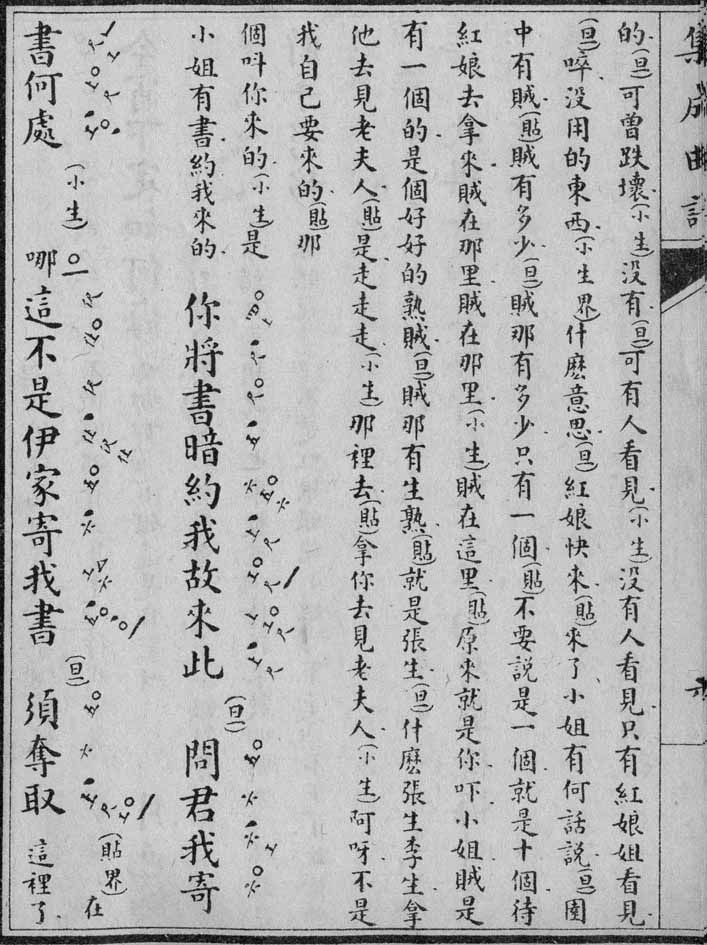 集成曲譜
的(旦)可曾跌壞(小生)沒有(旦)可有人看見(小生)沒有人看見只有紅娘姐看見
(旦)啐沒用的東西(小生界)什麽意思(旦)紅娘快來(貼)來了小姐有何話說(旦)園
中有賊(貼)賊有多少(旦)賊那有多少只有一個(貼)不要說是一個就是十個待
紅娘去拿來賊在那里賊在那里(小生)賊在這里(貼)原來就是你吓小姐賊是
有一個的是個好好的熟賊(旦)賊那有生熟(貼)就是張生(旦)什麽張生李生拿
他去見老夫人(貼)是走走走(小生)那裡去(貼)拿你去見老夫人(小生)阿呀不是
我自己要來的(貼)那
個呌你來的(小生)是
小姐有書約我來的
你將書暗約我故來此(旦)問君我寄
書何處(小生)哪這不是伊家寄我書(旦)須奪取(貼界)在
這裡了